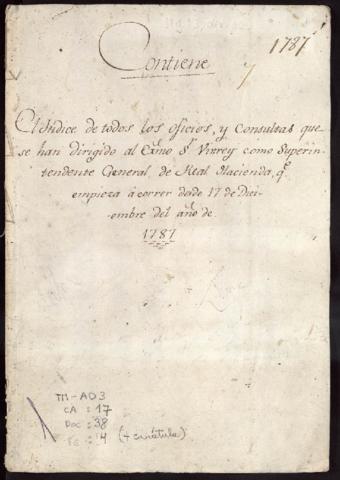 1787
Contiene
7
El Indice de todos los oficios, y Consultas que
se han dirigido al Exmo Sr Virrey como Superin-
tendente General, de Real Hacienda, qe
empieza à correr desde 17 de Dici-
embre del año de
1787
TM-AO3
CA : 17
Doc : 38
: 4 (+ carátula)